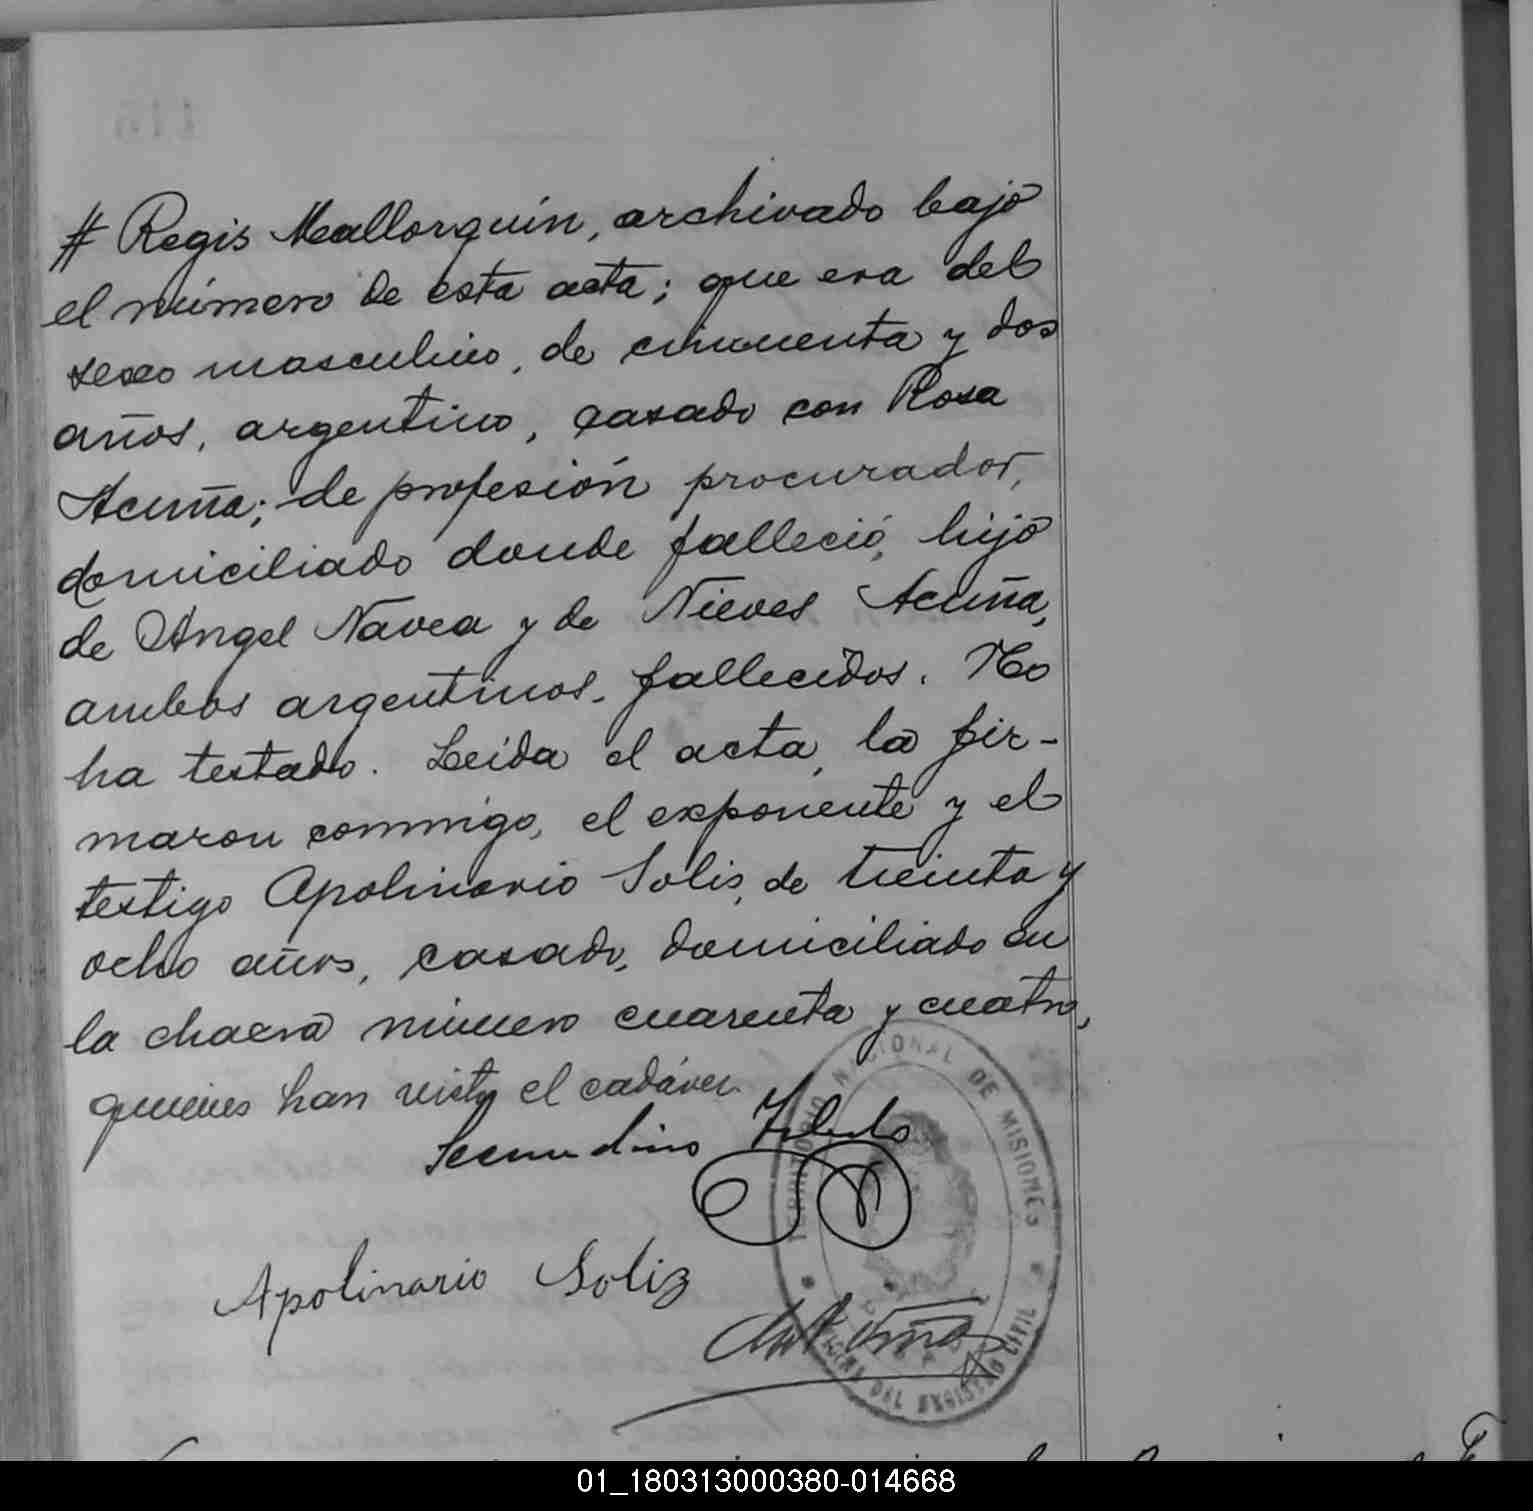 # Regis Mallorquín, archivado bajo
el número de esta acta; que era del
sexo masculino, de cincuenta y dos
años, argentino, casado con Rosa
Acuña; de profesión procurador,
domiciliado donde falleció, hijo
de Angel Navea y de Nieves Acuña,
ambos argentinos, fallecidos. No
ha testado. Leída el acta, la fir-
maron conmigo, el exponente y el
testigo Apolinario Solis, de treinta y
ocho años, casado, domiciliado en
la chacra número cuarenta y cuatro,
quienes han visto el cadáver.
Secundino
TERRITORIO NACIONAL DE MISIONES
Apolinario Soliz
OFICINA DEL REGISTRO CIVIL
01_180313000380-014668